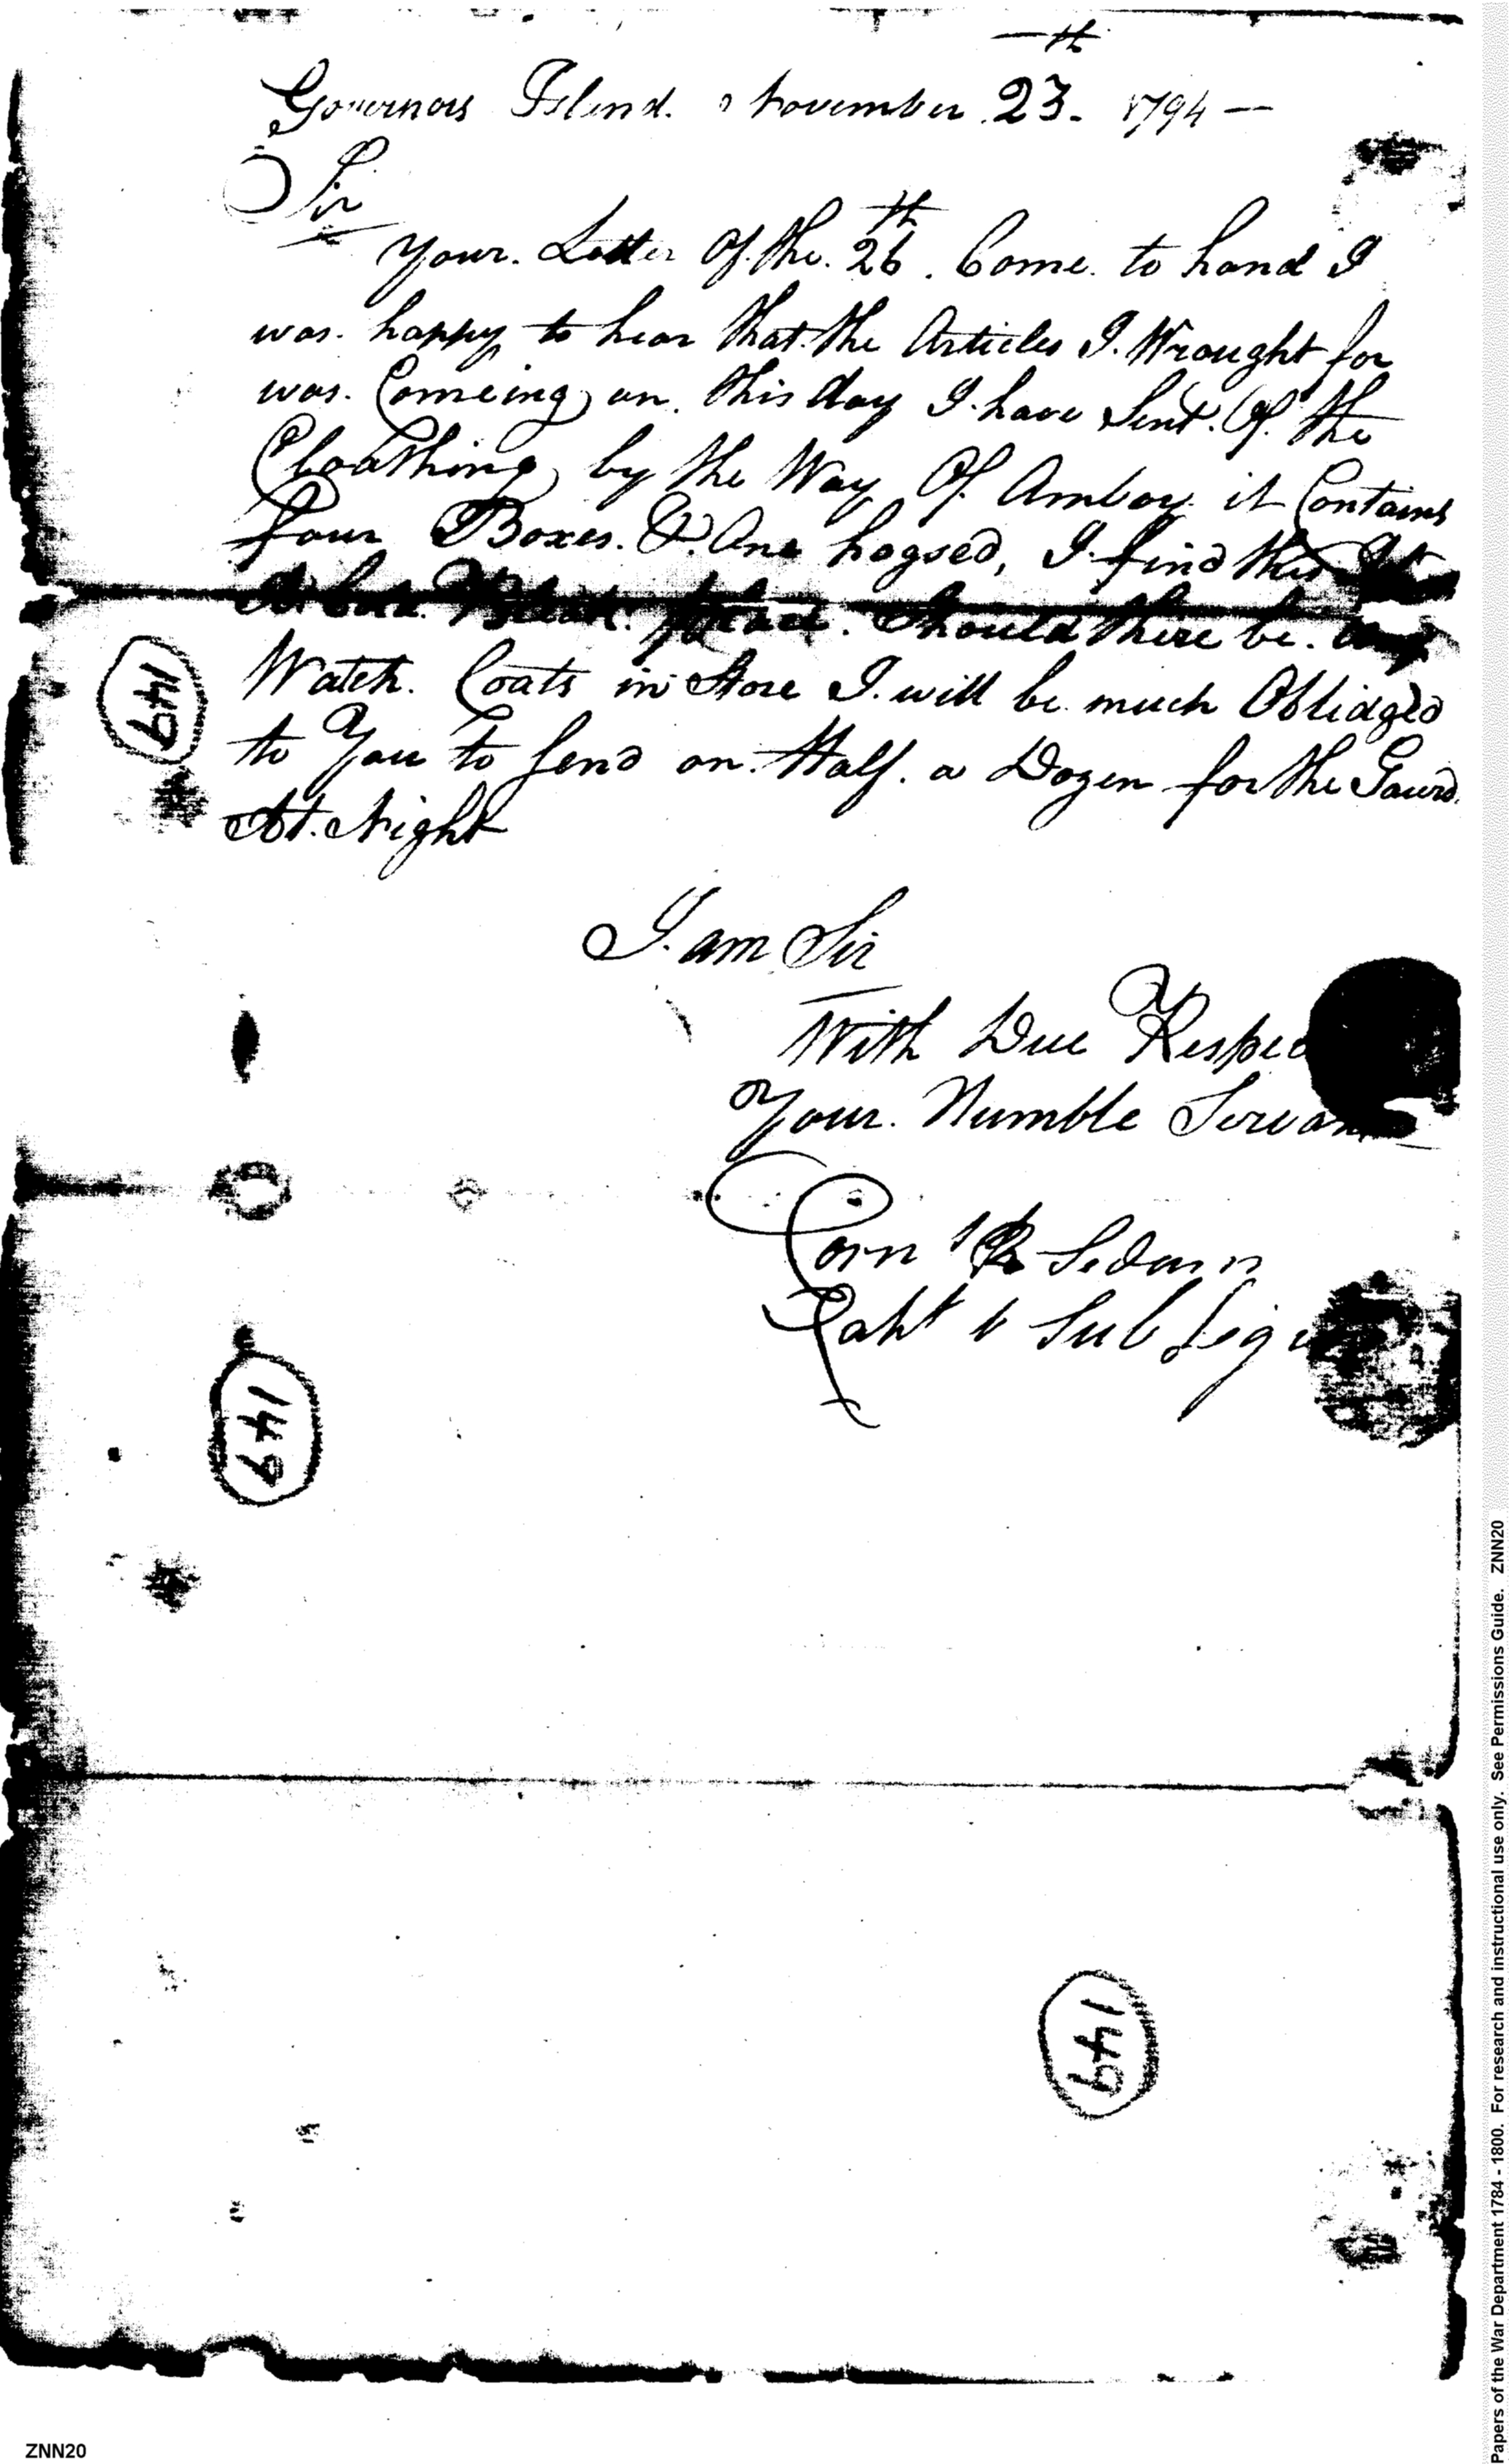 Governors Island. November 23th. 1794 —
Sir
Your. Letter Of. the. 26th. Come. to hand I
was. happy to hear that. the Articles I. Wrought for
was. Comeing on. this day I. have Sent. Of. the
Cloathing by the Way Of. Amboy. it Contains
four Boxes. & One hogsed, I. find this
A. Cold. Bleak. place. Should there be. any
Watch. Coats in Store I. will be much Oblidged
to You to Send on. Half. a Dozen for the Gaurd.
At. Night
I. am Sir
With Due Respect
Your. Humble Servant
Corn R Sedam
Capt 1 Sub Legion
149
149
149
Papers of the War Department 1784 - 1800. For research and instructional use only. See Permissions Guide. ZNN20
ZNN20